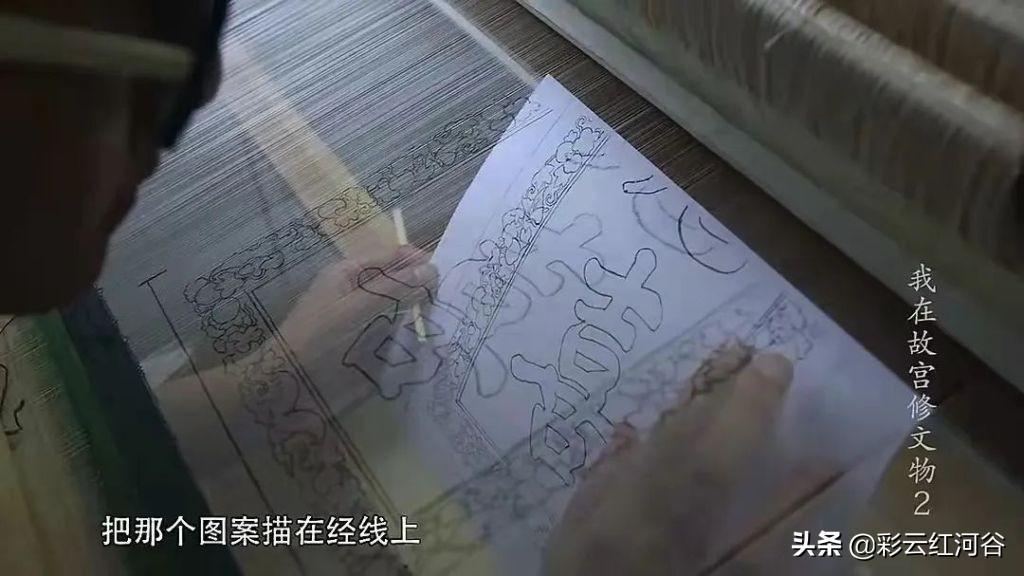 我在故宫修文物2
把那个图案描在经线上
头条 @彩云红河谷